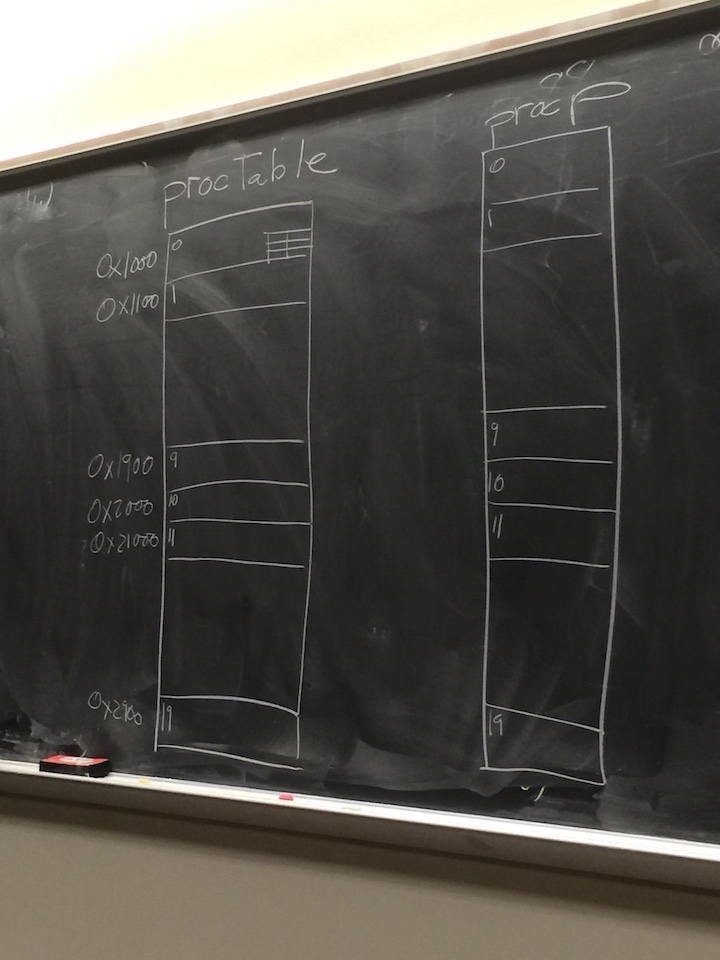 procTable
0x1000 0
0x1100 1
0x1900 9
0x2000 10
0x21000 11
0x2900 19
procp
0
1
9
10
11
19